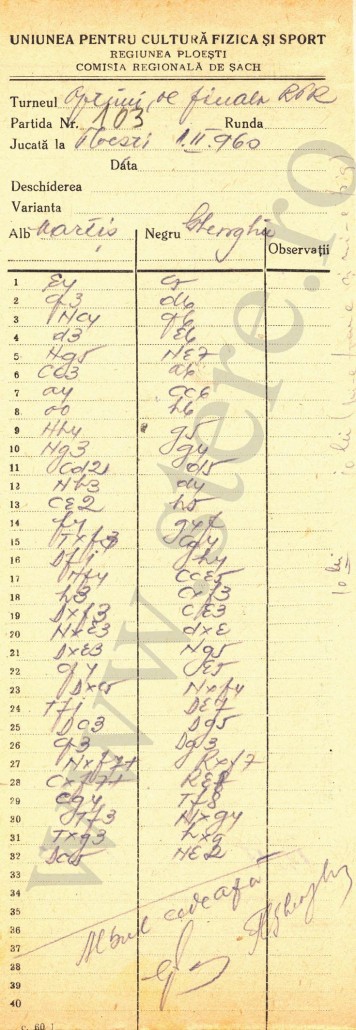 UNIUNEA PENTRU CULTURĂ FIZICA ȘI SPORT
REGIUNEA PLOEȘTI
COMISIA REGIONALĂ DE ȘACH
Turneul Optimi de finala RPR
Partida Nr. 103 Runda
Jucată la Ploesti 1.II.960
Dáta
Deschiderea
Varianta
Alb Martis Negru Gheorghiu Observații
1 E4 c5
2 g3 d6
3 Nc4 g6
4 d3 E6
5 Ng5 NE7
6 Cc3 a6
7 a4 Cc6
8 oo h6
9 Nh4 g5
10 Ng3 g4
11 Cd2 d5
12 Nb3 d4
13 CE2 h5
14 f4
15 Txf3
16 Df1 h4
17 Nf4 CcE5
18 h3 Cxf3
19 Dxf3 CE3
20 NxE3 dxE
21 DxE3 Ng5
22 g4 E5
23 Dxc5 Nxf4
24 Tf1 DE7
25 Dc3 Dg5
26 g3 Dg3
27 Nxf7+ Rxf7
28 Cxf4+ RE8
29 Cg4 Tf8
30 Tf3 Nxg4
31 Txg3 hxg
32 Dc5 NE2
33
34
35
36
37
28
39
40
Albul cedeaza
Gheorghiu
c. 60
www.stere.ro